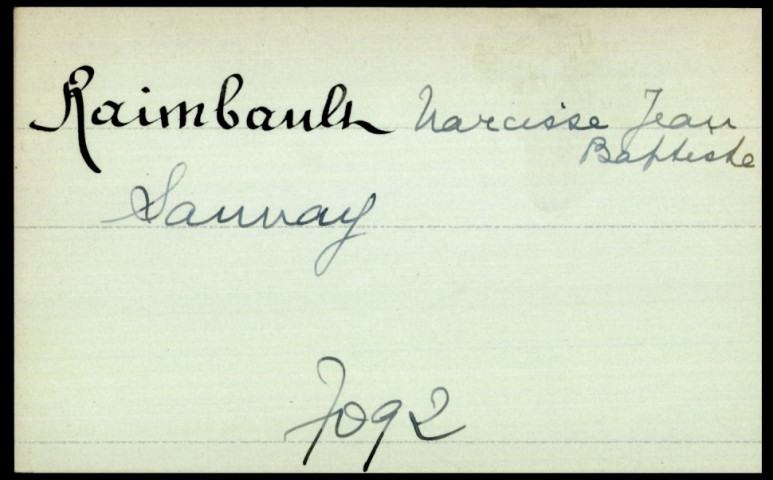 Raimbault Narcisse Jean
Baptiste
Sauvay
7092